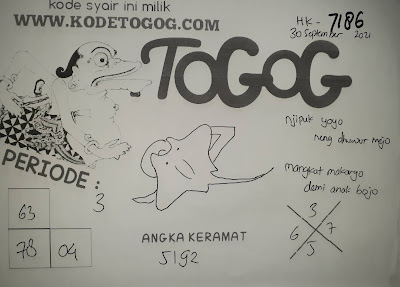 kode syair ini milik
WWW.KODETOGOG.COM
HK - 7186
30 September 2021
TOGOG
njipuk yoyo
neng dhuwur mejo
PERIODE :
3
mangkat makaryo
demi anak bojo
63
78 04
ANGKA KERAMAT
5192
3
6 7
5